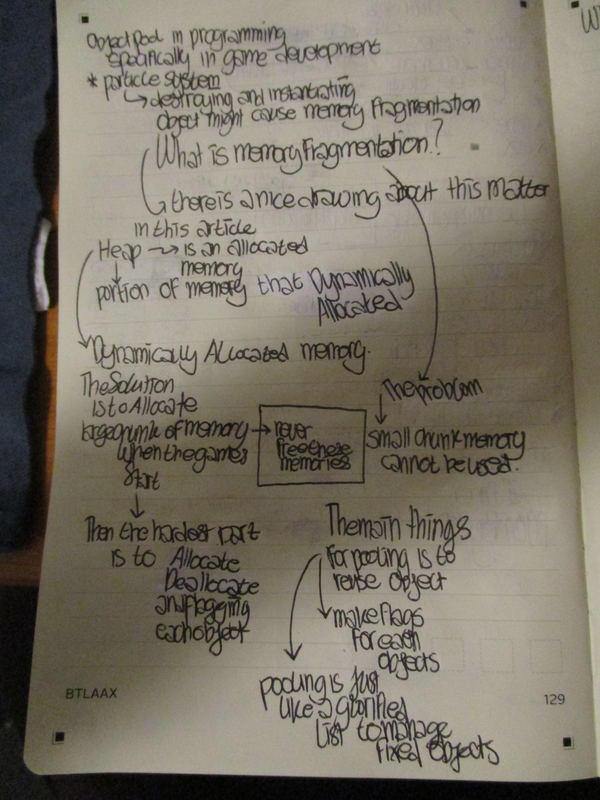 Object Pool in programming
specifically in game development
* particle system
destroying and instantiating
object might cause memory Fragmentation
What is memory Fragmentation?
there is a nice drawing about this matter
in this article
Heap is an allocated
memory
portion of memory that Dynamically
Allocated
Dynamically Allocated memory.
The Solution
is to Allocate
large chunk of memory
when the games
Start
never
free these
memories
The problem
small chunk memory
cannot be used.
Then the hardest part
is to Allocate
Deallocate
and flagging
each object
The main things
for pooling is to
reuse object
make flags
for each
objects
pooling is just
like a glorified
list to manage
fixed objects
BTLAAX
129